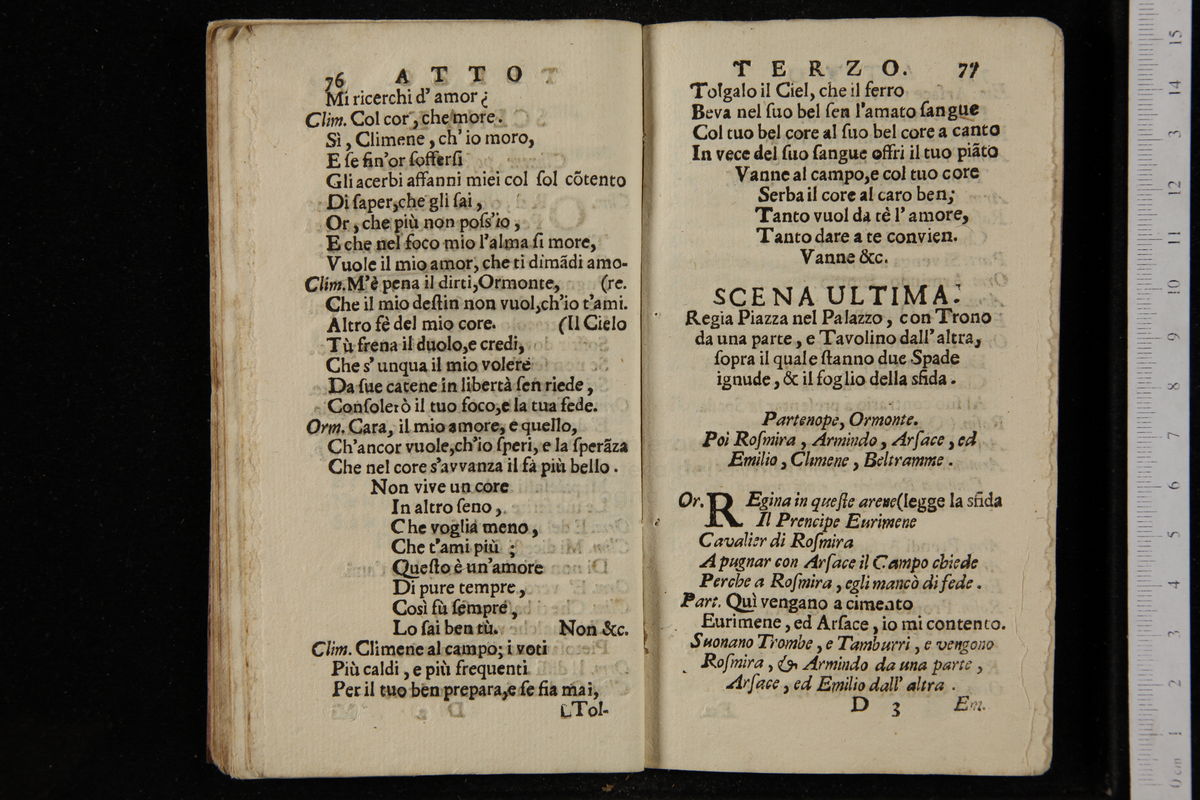 76 ATTO
Mi ricerchi d' amor ¿
Clim. Col cor, che more.
Sì, Climene, ch' io moro,
E ſe fin'or ſofferſi
Gli acerbi affanni miei col ſol cõtento
Di ſaper, che gli ſai,
Or, che più non poſs'io,
E che nel foco mio l'alma ſi more,
Vuole il mio amor, che ti dimãdi amo-
Clim. M'è pena il dirti, Ormonte, (re.
Che il mio deſtin non vuol, ch'io t'ami.
Altro fè del mio core. (Il Cielo
Tù frena il duolo, e credi,
Che s' unqua il mio volere
Da ſue catene in libertà ſen riede,
Conſolerò il tuo foco, e la tua fede.
Orm. Cara, il mio amore, e quello,
Ch'ancor vuole, ch'io ſperi, e la ſperãza
Che nel core s'avvanza il fà più bello.
Non vive un core
In altro ſeno,
Che voglia meno,
Che t'ami più ;
Queſto è un'amore
Di pure tempre,
Così fù ſempre,
Lo ſai ben tù. Non &c.
Clim. Climene al campo; i voti
Più caldi, e più frequenti
Per il tuo ben prepara, e ſe fia mai,
Tol-
TERZO. 77
Tolgalo il Ciel, che il ferro
Beva nel ſuo bel ſen l'amato ſangue
Col tuo bel core al ſuo bel core a canto
In vece del ſuo ſangue offri il tuo piãto
Vanne al campo, e col tuo core
Serba il core al caro ben;
Tanto vuol da tè l' amore,
Tanto dare a te convien.
Vanne &c.
SCENA ULTIMA.
Regia Piazza nel Palazzo, con Trono
da una parte, e Tavolino dall' altra,
ſopra il quale ſtanno due Spade
ignude, & il foglio della sfida.
Partenope, Ormonte.
Poi Roſmira, Armindo, Arſace, ed
Emilio, Climene, Beltramme.
Or. REgina in queſte arene (legge la sfida
Il Prencipe Eurimene
Cavalier di Roſmira
A pugnar con Arſace il Campo chiede
Perche a Roſmira, egli mancò di fede.
Part. Quì vengano a cimento
Eurimene, ed Arſace, io mi contento.
Suonano Trombe, e Tamburri, e vengono
Roſmira, & Armindo da una parte,
Arſace, ed Emilio dall' altra.
D 3 Em.
15
14
13
12
11
10
9
8
7
6
5
4
3
2
1
0 cm